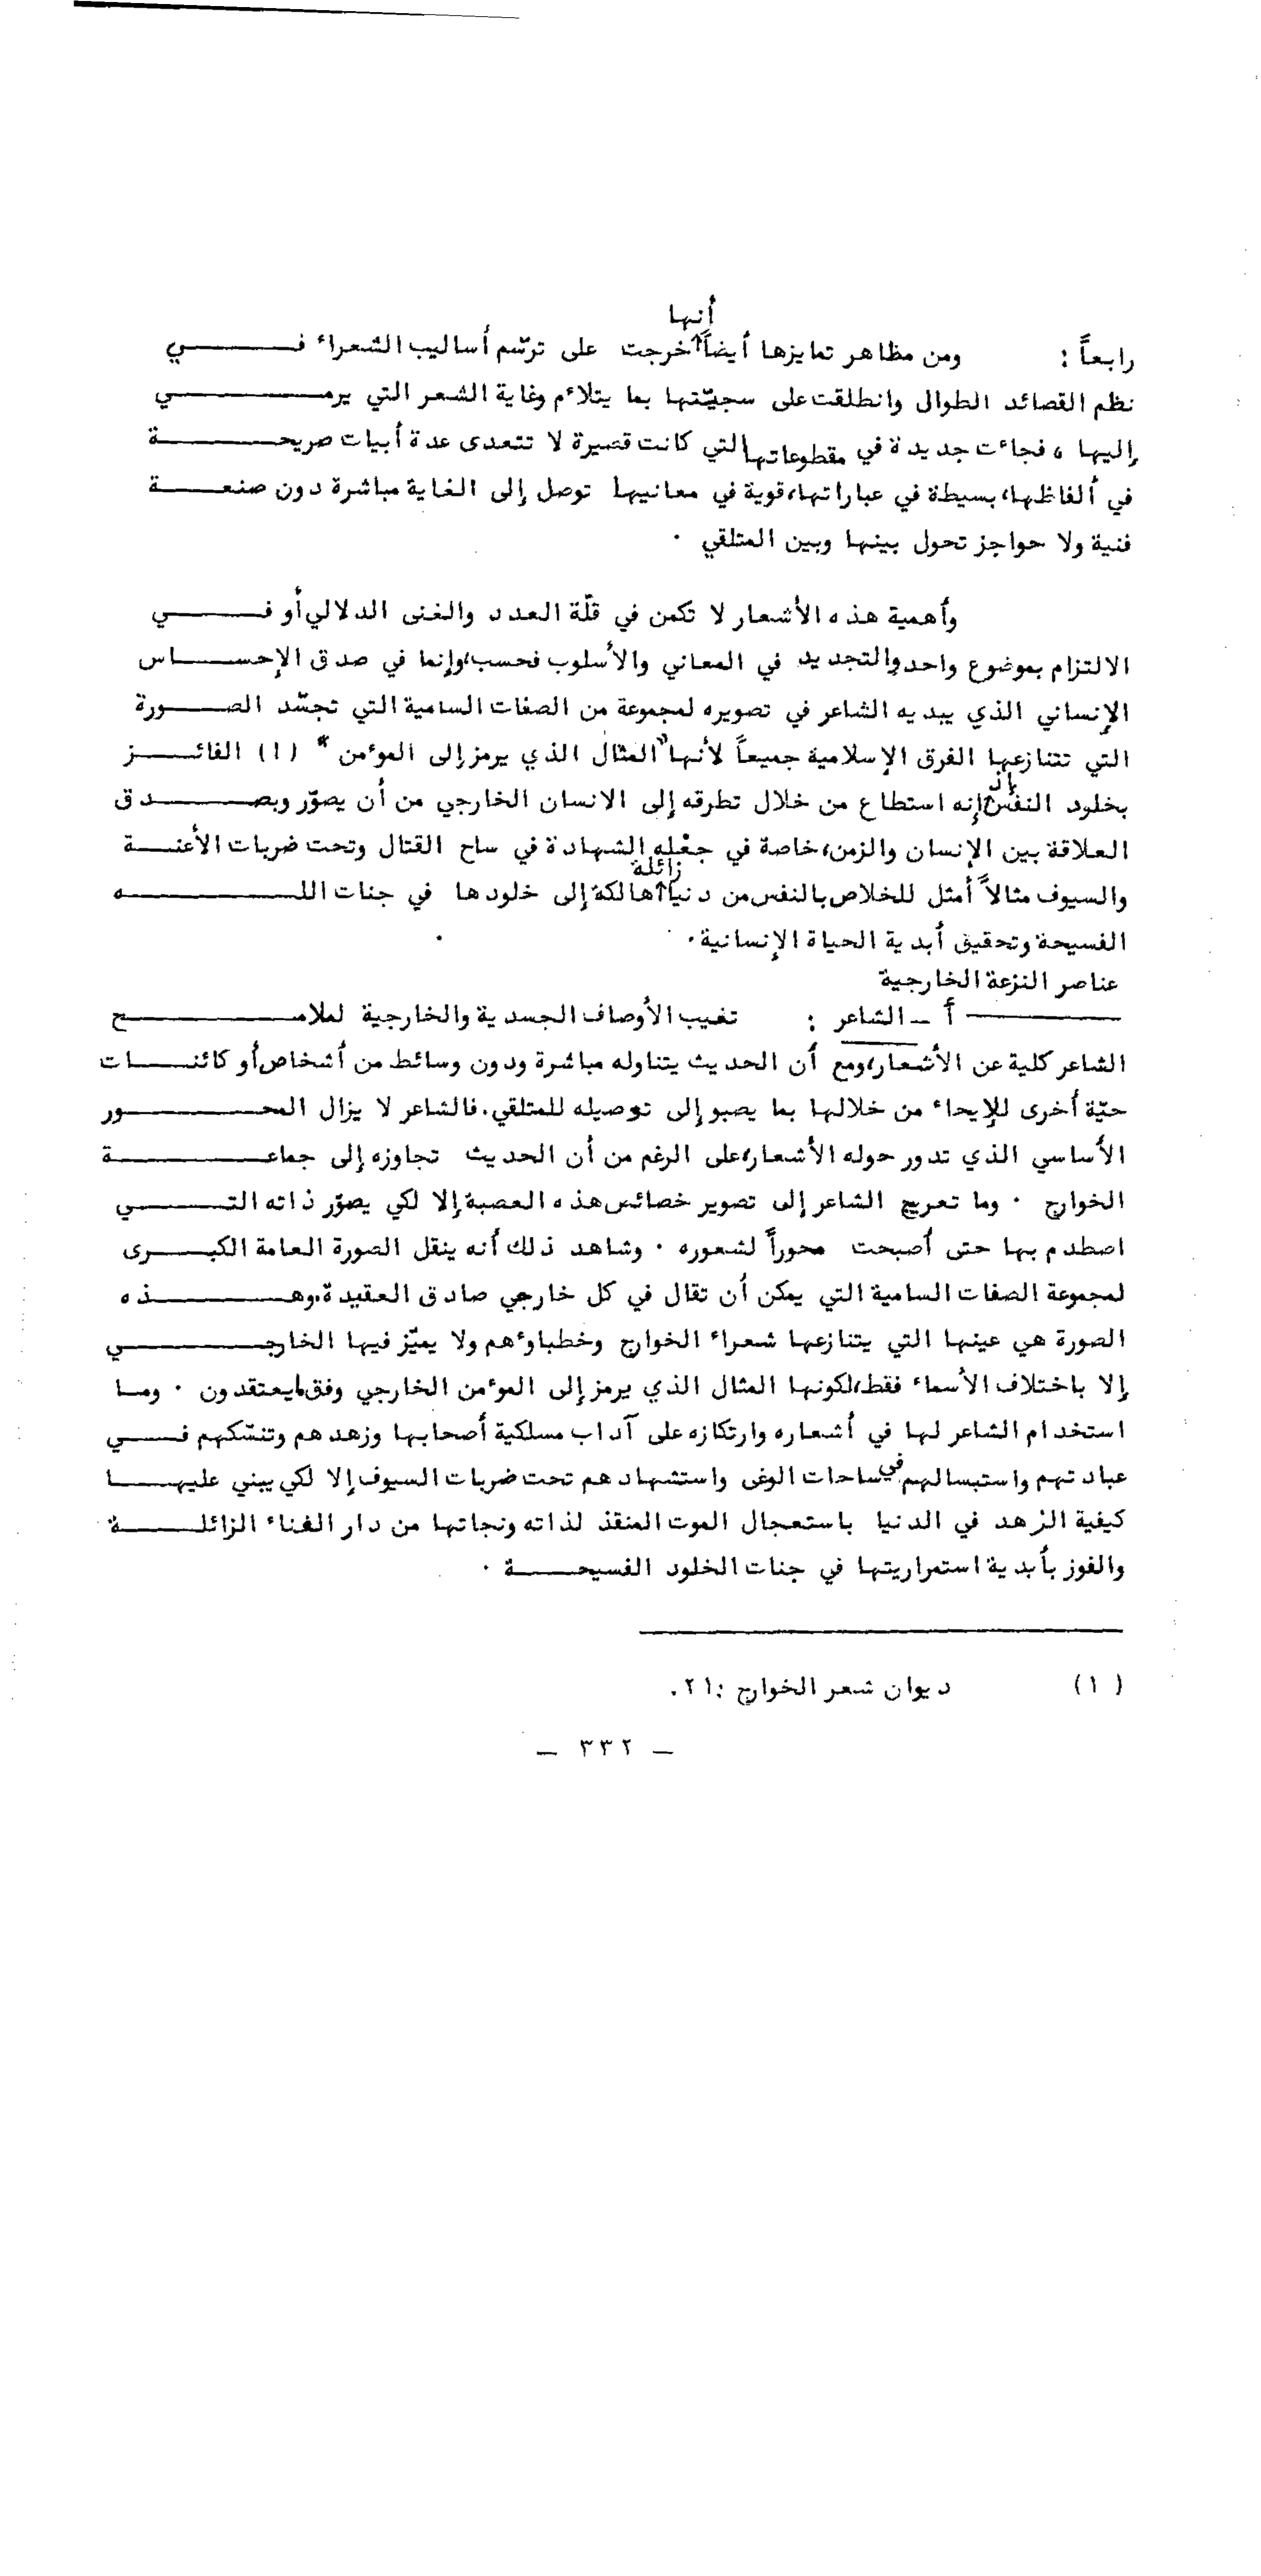 أنها
رابعاً : ومن مظاهر تمايزها أيضاً خرجت على ترسّم أساليب الشعراء فـــــي
نظم القصائد الطوال وانطلقت على سجيّتها بما يتلاءم وغاية الشعر التي يرمـــــي
إليها ، فجاءت جديدة في مقطوعاتها التي كانت قصيرة لا تتعدى عدة أبيات صريحـــــة
في ألفاظها، بسيطة في عباراتها، قوية في معانيها توصل إلى الغاية مباشرة دون صنعـــــة
فنية ولا حواجز تحول بينها وبين المتلقي .
وأهمية هذه الأشعار لا تكمن في قلّة العدد والغنى الدلالي أو فـــــي
الالتزام بموضوع واحد والتجديد في المعاني والأسلوب فحسب، وإنما في صدق الإحســـــاس
الإنساني الذي يبديه الشاعر في تصويره لمجموعة من الصفات السامية التي تجسّد الصـــــورة
التي تتنازعها الفرق الإسلامية جميعاً لأنها "المثال الذي يرمز إلى الموءمن " (١) الفائـــــز
بخلود النفس إذ إنه استطاع من خلال تطرقه إلى الانسان الخارجي من أن يصوّر وبصـــــدق
العلاقة بين الإنسان والزمن، خاصة في جعْله الشهادة في ساح القتال وتحت ضربات الأعنـــــة
زائلة
والسيوف مثالاً أمثل للخلاص بالنفس من دنيا هالكة إلى خلودها في جنات اللـــــه
الفسيحة وتحقيق أبدية الحياة الإنسانية .
عناصر النزعة الخارجية
أ ــ الشاعر : تغيب الأوصاف الجسدية والخارجية لملامـــــح
الشاعر كلية عن الأشعار، ومع أن الحديث يتناوله مباشرة ودون وسائط من أشخاص أو كائنـــــات
حيّة أخرى للإيحاء من خلالها بما يصبو إلى توصيله للمتلقي. فالشاعر لا يزال المحـــــور
الأساسي الذي تدور حوله الأشعار، على الرغم من أن الحديث تجاوزه إلى جماعـــــة
الخوارج . وما تعريج الشاعر إلى تصوير خصائص هذه العصبة إلا لكي يصوّر ذاته التـــــي
اصطدم بها حتى أصبحت محوراً لشعوره . وشاهد ذلك أنه ينقل الصورة العامة الكبـــــرى
لمجموعة الصفات السامية التي يمكن أن تقال في كل خارجي صادق العقيدة. وهـــــذه
الصورة هي عينها التي يتنازعها شعراء الخوارج وخطباوءهم ولا يميّز فيها الخارجـــــي
إلا باختلاف الأسماء فقط، لكونها المثال الذي يرمز إلى الموءمن الخارجي وفق ما يعتقدون . ومـــا
استخدام الشاعر لها في أشعاره وارتكازه على آداب مسلكية أصحابها وزهدهم وتنسّكهم فـــــي
عبادتهم واستبسالهم في ساحات الوغى واستشهادهم تحت ضربات السيوف إلا لكي يبني عليهـــــا
كيفية الزهد في الدنيا باستعجال الموت المنقذ لذاته ونجاتها من دار الفناء الزائلـــــة
والفوز بأبدية استمراريتها في جنات الخلود الفسيحـــــة .
(١) ديوان شعر الخوارج :٢١.
ــ ٣٣٢ ــ